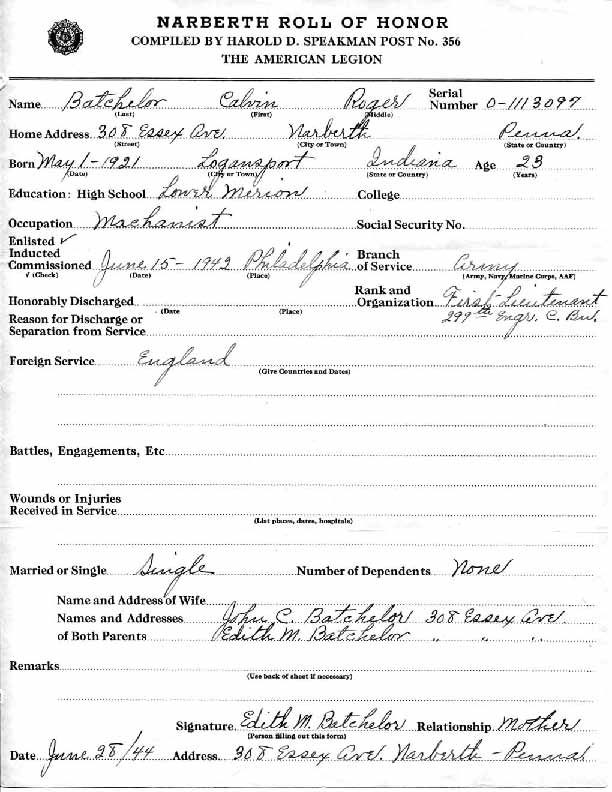 NARBERTH ROLL OF HONOR
COMPILED BY HAROLD D. SPEAKMAN POST No. 356
THE AMERICAN LEGION
Name Batchelor Calvin Roger Serial Number O-1113097
(Last) (First) (Middle)
Home Address 308 Essex Ave Narberth Penna.
(Street) (City or Town) (State or Country)
Born May 1-1921 Logansport Indiana Age 23
(Date) (City or Town) (State or Country) (Years)
Education: High School Lower Merion College
Occupation Machanist Social Security No.
Enlisted ✓
Inducted Branch
Commissioned June 15-1942 Philadelphia of Service Army
√ (Check) (Date) (Place) (Army, Navy, Marine Corps, AAF)
Rank and
Honorably Discharged Organization First-Lieutenant
(Date (Place) 299th Engr. C. Bn.
Reason for Discharge or
Separation from Service
Foreign Service England
(Give Countries and Dates)
Battles, Engagements, Etc
Wounds or Injuries
Received in Service
(List places, dates, hospitals)
Married or Single Single Number of Dependents None
Name and Address of Wife
Names and Addresses John C. Batchelor 308 Essex Ave.
of Both Parents Edith M. Batchelor " " "
Remarks
(Use back of sheet if necessary)
Signature Edith M. Batchelor Relationship Mother
(Person filling out this form)
Date June 28/44 Address 308 Essex Ave. Narberth - Penna